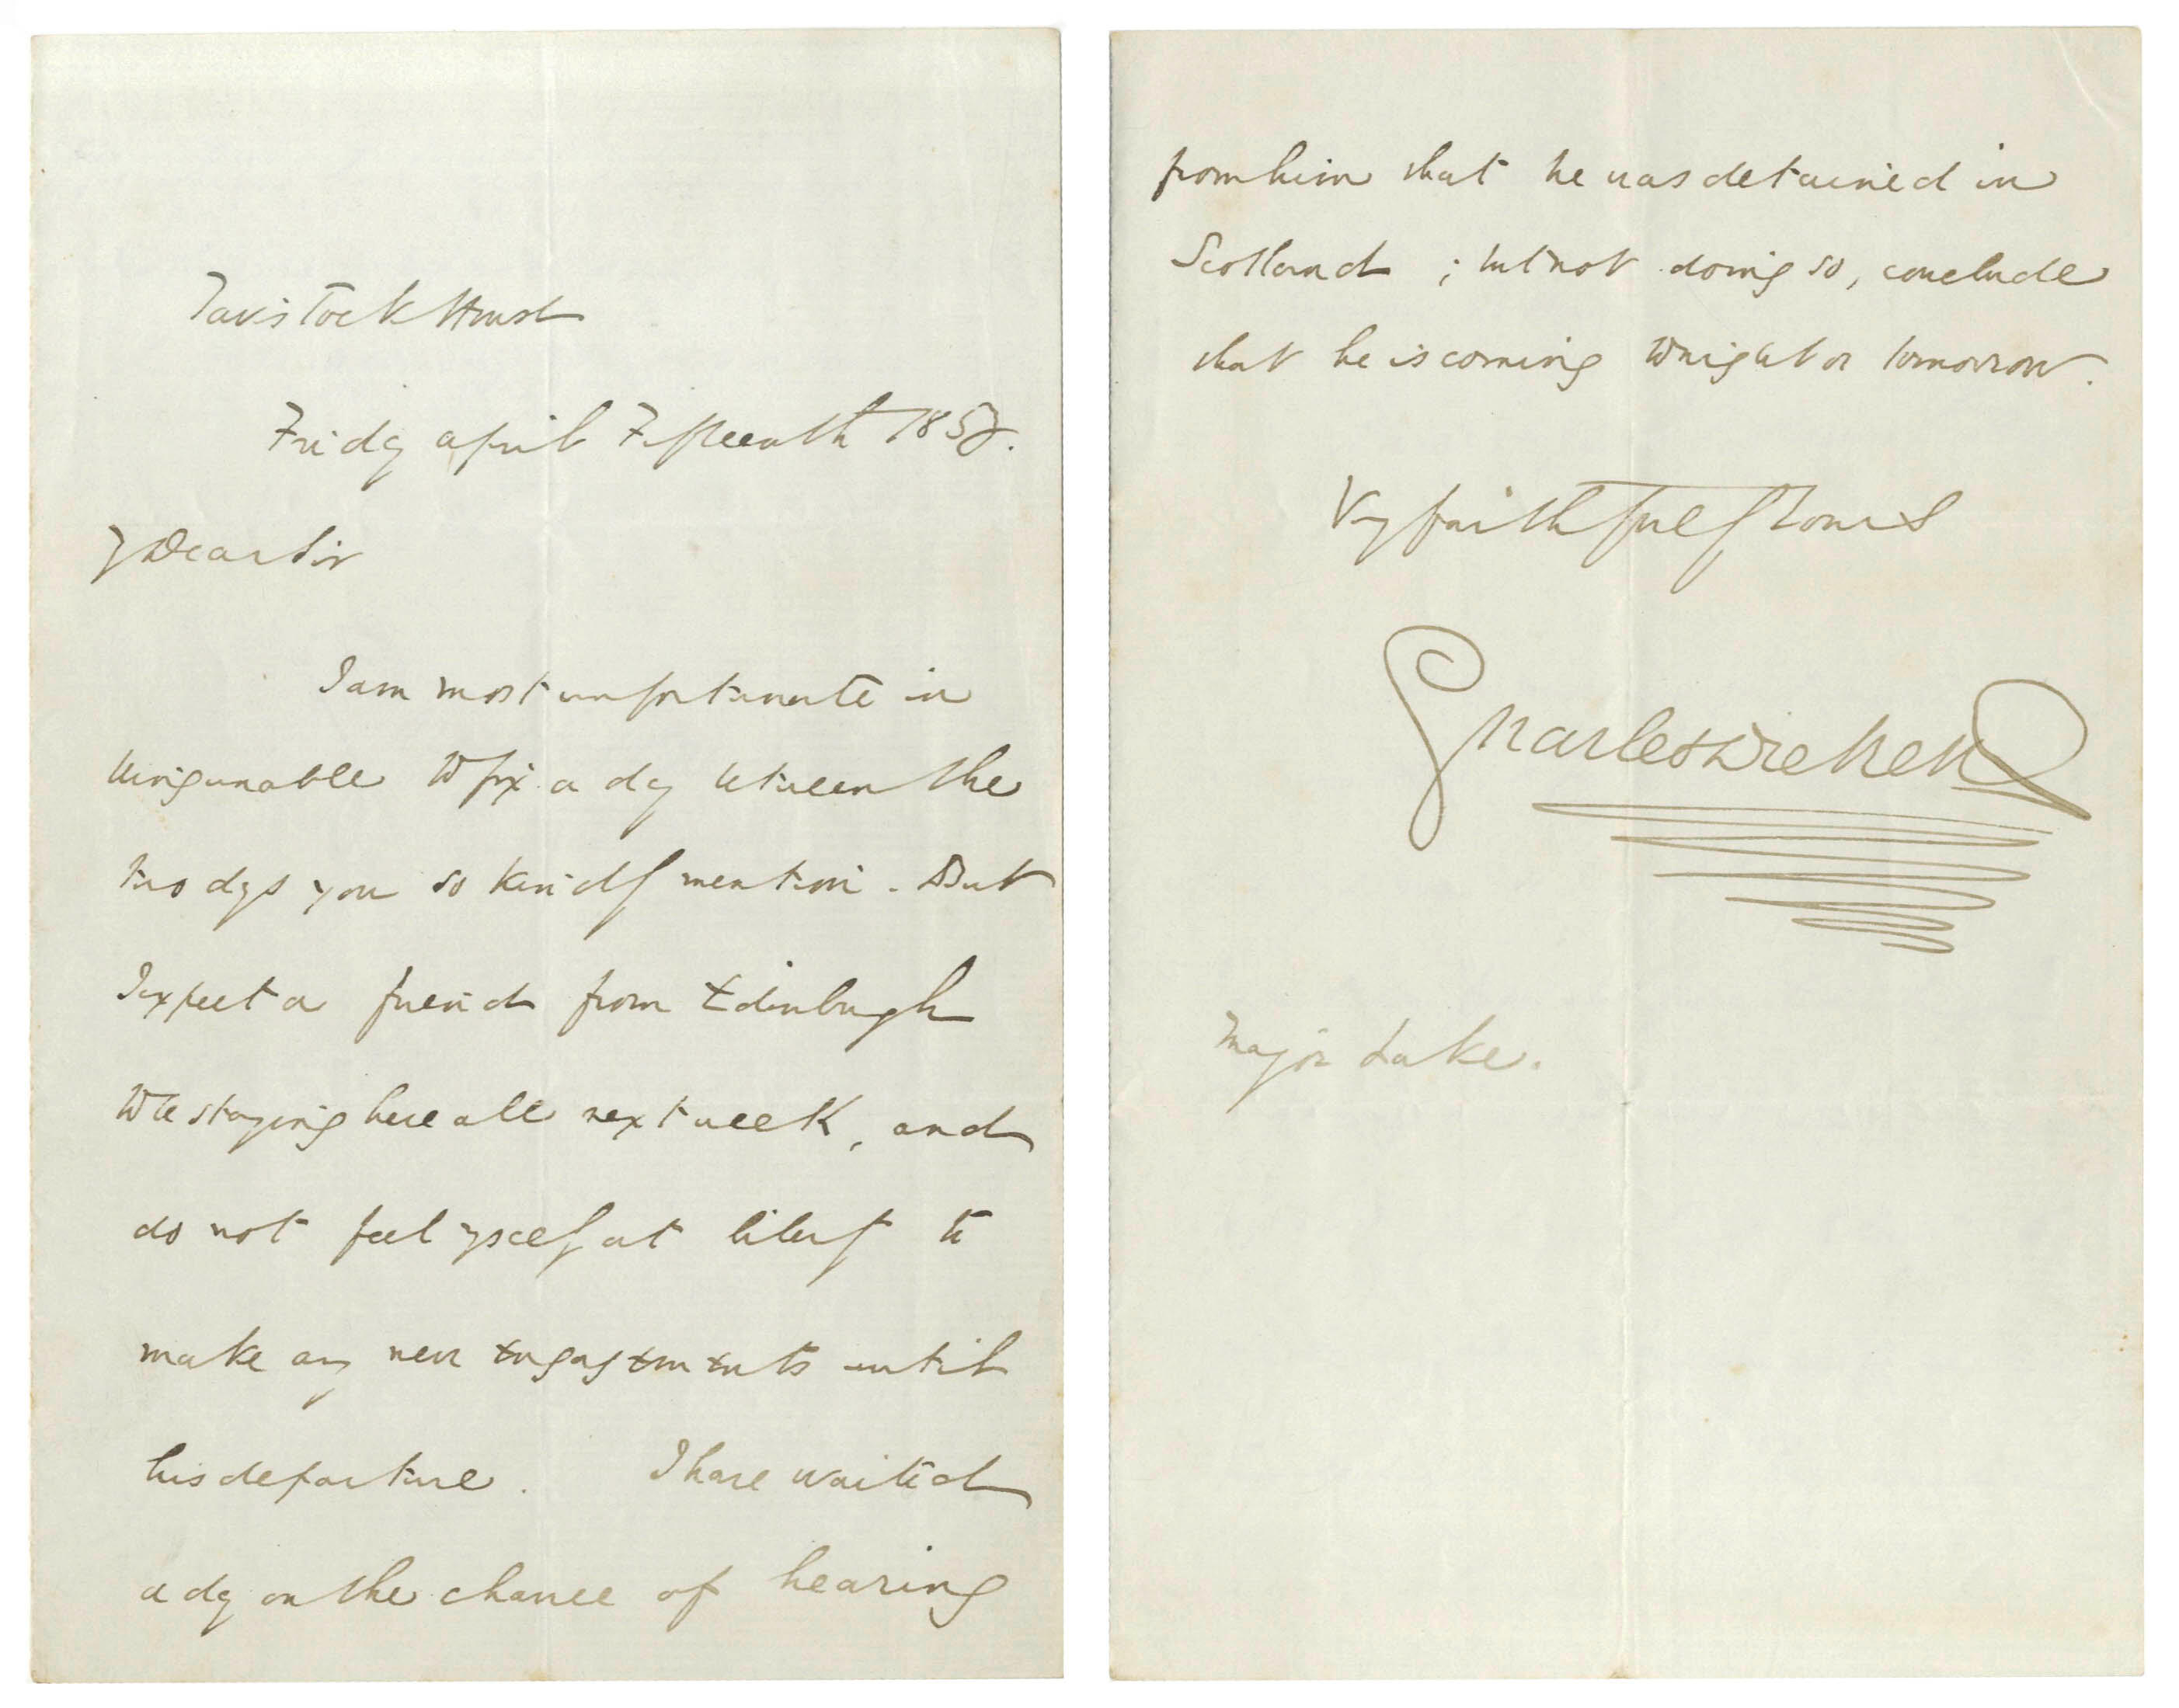 Tavistock House
Friday April Fifteenth 1853.
My Dear Sir
I am most unfortunate in
being unable to fix a day between the
two days you so kindly mention. But
I expect a friend from Edinburgh
to be staying here all next week, and
do not feel myself at liberty to
make any new engagements until
his departure. I have waited
a day on the chance of hearing
from him that he was detained in
Scotland; but not doing so, conclude
that he is coming tonight or tomorrow.
Very faithfully Yours
Charles Dickens
Major Lake.